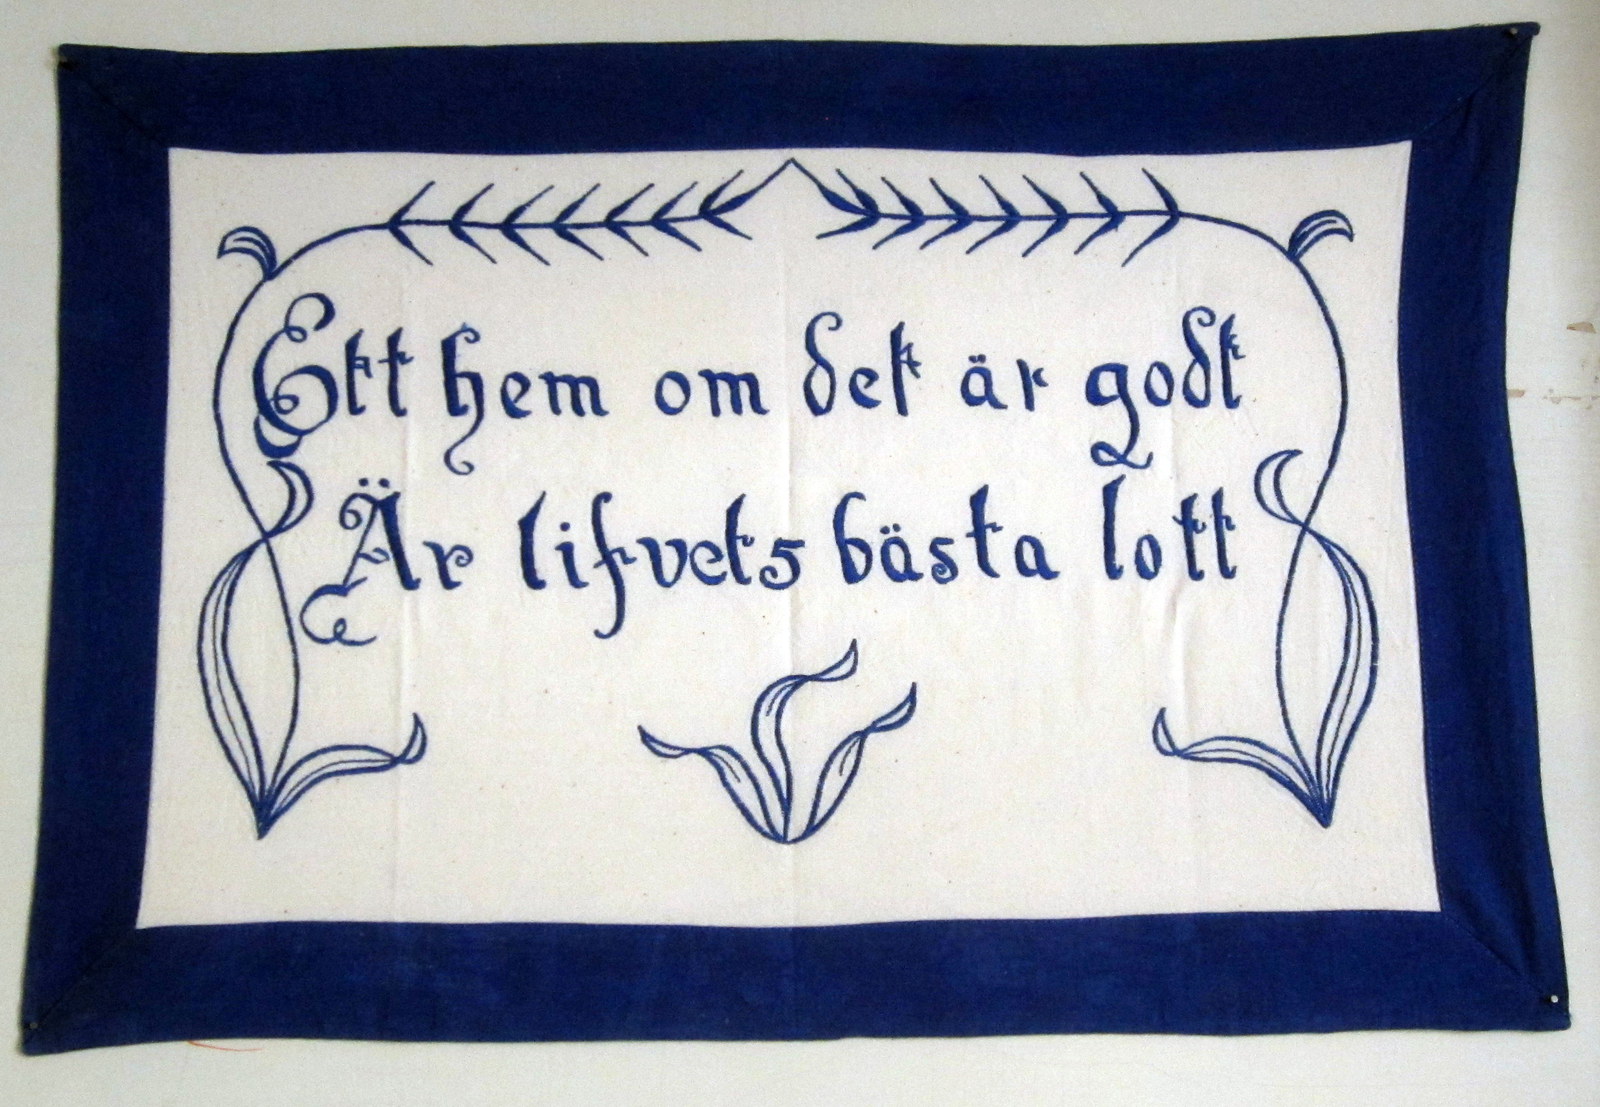 Ett hem om det är godt
Är lifvets bästa lott